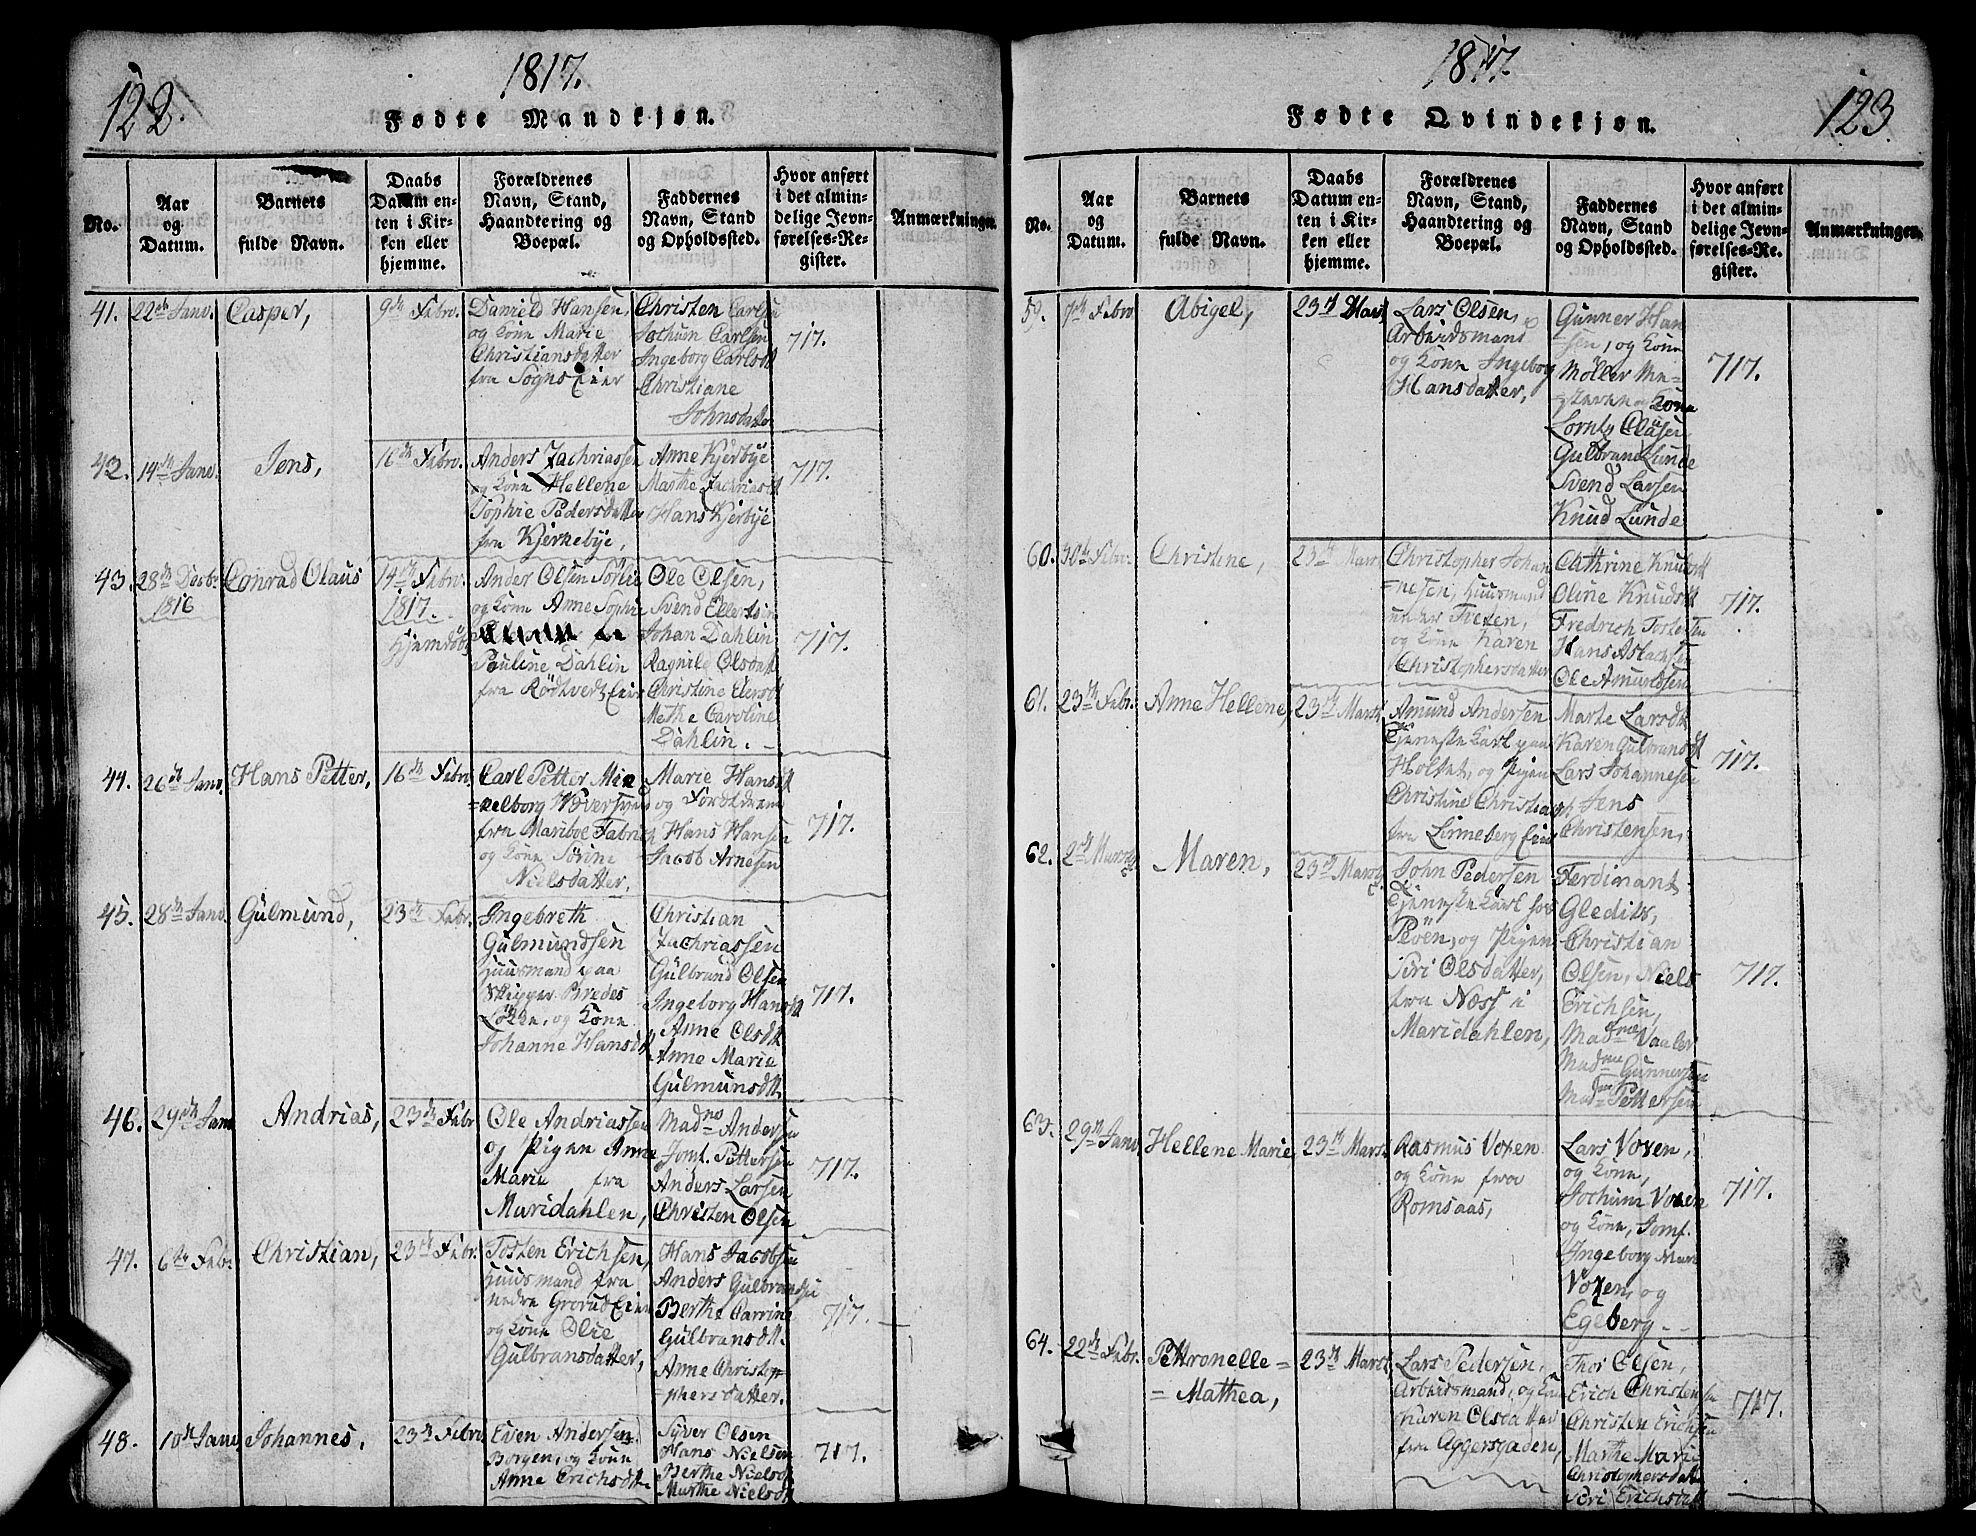 122.
1817.
Fødte Mandkjøn.
No.
Aar
og
Datum.
Barnets
fulde Navn.
Daabs
Datum en-
ten i Kir-
ken eller
hjemme.
Forældrenes
Navn, Stand,
Haandtering og
Boepæl.
Faddernes
Navn, Stand
og Opholdssted.
Hvor anført
i det almin-
delige Jevn-
førelses-Re-
gister.
Anmærkninger.
41.
22de Janv.
Casper,
9de Febrv.
Daniel Hansen,
og Kone Marie
Christiansdatter
fra Sogns Eier
Christen Carlsen
Jochum Carlsen
Ingeborg Carlsdt
Christiane
Johnsdatter
717.
42.
14de Janv.
Jens,
16de Febrv.
Anders Zachriassen
og Kone Hellene
Sophie Pedersdatter
fra Kjerkebye,
Anne Kjerbye
Marthe Zachriasdt
Hans Kjerbye
717.
43.
28de Decbr.
1816
Conrad Olaus
14de Febrv.
1817.
Hjemdøbt
Ander Olsen
og Kone Anne Sophie
Pauline Dahlin
fra Rödtvedt Eier
Ole Olsen,
Svend Ellertsen
Johan Dahlin
Ragnild Olsdatt
Christine
Methe Caroline
Dahlin.
717.
44.
26de Janv.
Hans Petter,
16de Febrv.
Carl Petter
fra Mariboe Fabrich
og Kone Sörine
Nielsdatter,
Marie Hansdt
og
Hans Hansen
Jacob Arnesen
717.
45.
28de Janv.
Gulmund,
23de Febr.
Ingebreth
Gulmundsen
Huusmand paa
Skipper Bredes
Løkke, og Kone
Johanne Hansdt
Christian
Zachriassen
Gulbrand Olsen
Ingeborg Hansdt
Anne Olsdt
Anne Marie
Gulmunsdt.
717.
46.
29de Janv
Andrias,
23de Febr
Ole Andriassen
og Pigen Anne
Marie fra
Maridahlen,
Madme Andersen
Jomf. Pettersen
Anders Larsen
Christen Olsen
717.
47.
6te Febr.
Christian,
23de Febr.
Tosten Erichsen,
Huusmand fra
nedre Grorud Eier
og Kone Olie
Gulbransdatter,
Hans Jacobsen
Anders Gulbrandsen
Berthe Carrine
Gulbransdt.
Anne Christop-
=phersdatter.
717.
48.
10de Janv
Johannes,
23de Febrv.
Even Andersen
Borgen, og Kone
Anne Erichsdt
Syver Olsen
Hans Nielsen
Berthe Nielsdt
Marthe Nielsdt
717.
1817.
Fødte Qvindekjøn.
123.
No.
Aar
og
Datum.
Barnets
fulde Navn.
Daabs
Datum en-
ten i Kir-
ken eller
hjemme.
Forældrenes
Navn, Stand,
Haandtering og
Boepæl.
Faddernes
Navn, Stand
og Opholdssted.
Hvor anført
i det almin-
delige Jevn-
førelses-Re-
gister.
Anmærkninger.
59.
7de Febrv
Abigel,
23de Mars
Lars Olsen,
Arbeidsmand
og Kone Ingeborg
Hansdatter,
Gunner Han
sen, og Kone
Möller Me=
steren og Kone
Oläsen
Gulbrand Lunde
Svend Larsen
Knud Lunde
717.
60.
Febrv.
Christine,
23de Mars
Christopher Johan
=nesen, Huusmand
under
og Kone Karen
Christophersdatter
Cathrine Knudsdt
Oline Knudsdt
Fredrich Tostensen
Hans Aslachsen
Ole Amundsen
717.
61.
23de Febr.
Anne Hellene,
23de Marts
Amund Andersen
Tjeneste Karl paa
Holtet, og Pigen
Christine Christiansdt.
fra Linneberg Eier
Marte Larsdt
Karen Gulbransdt
Lars Johannesen
Jens
Christensen,
717.
62.
2de Marts
Maren,
23de Marts
John Pedersen
Tjeneste Karl hos
og Pigen
Siri Olsdatter,
fra Næss i
Maridahlen,
Ferdinant
Gledits,
Christian
Olsen, Niels
Erichsen,
Madme Vaaler
Madme Gunnersen
Madme Pettersen
717.
63.
29de Janv.
Hellene Marie
23de Mars.
Rasmus Voxen
og Kone fra
Romsaas,
Lars Voxen,
og Kone,
Jochum Voxen
og Kone, Jomf.
Ingeborg Marie
Voxen, og
Egeberg.
717.
64.
22de Febr.
Pettronelle=
=Mathea,
23de Marts
Lars Pedersen,
Arbeidsmand, og Kone
Karen Olsdatter
fra Aggersgaden,
Thor Olsen,
Erich Christensen
Christen Erichsen
Marthe Marie
Christophersdatter
Siri Erichsdatt
717.